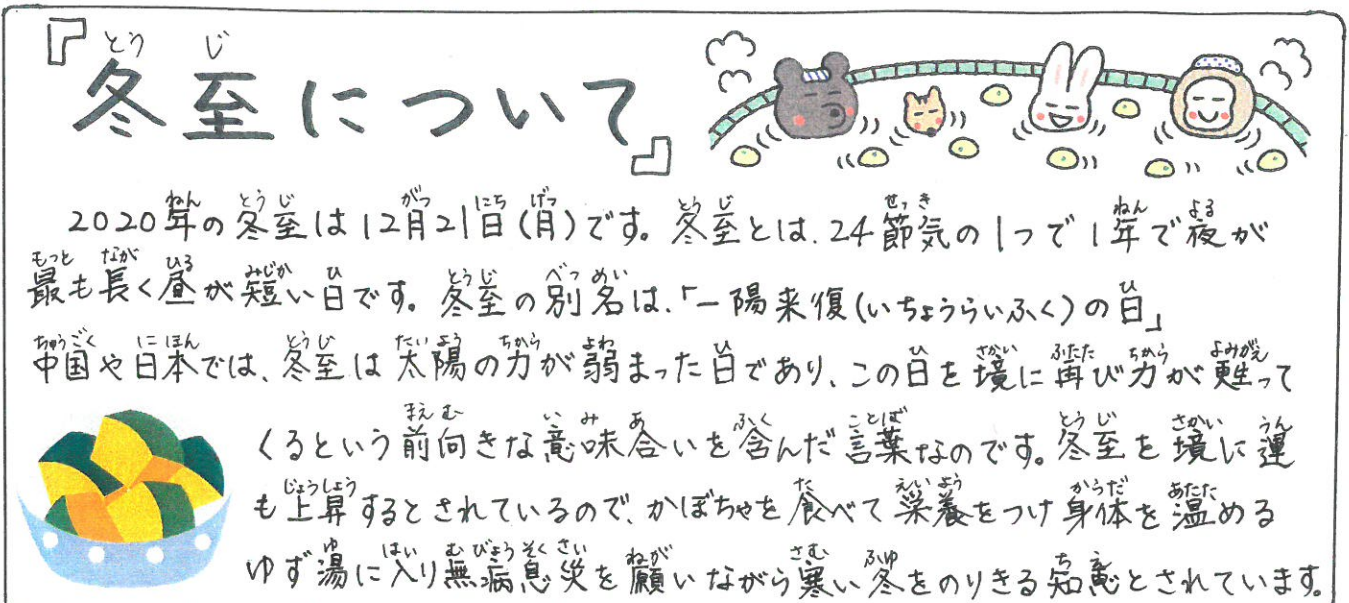 『冬至について』
2020年の冬至は12月21日(月)です。冬至とは、24節気の1つで1年で夜が
最も長く昼が短い日です。冬至の別名は、「一陽来復(いちょうらいふく)の日」
中国や日本では、冬至は太陽の力が弱まった日であり、この日を境に再び力が甦って
くるという前向きな意味合いを含んだ言葉なのです。冬至を境に運
も上昇するとされているので、かぼちゃを食べて栄養をつけ身体を温める
ゆず湯に入り無病息災を願いながら寒い冬をのりきる知恵とされています。